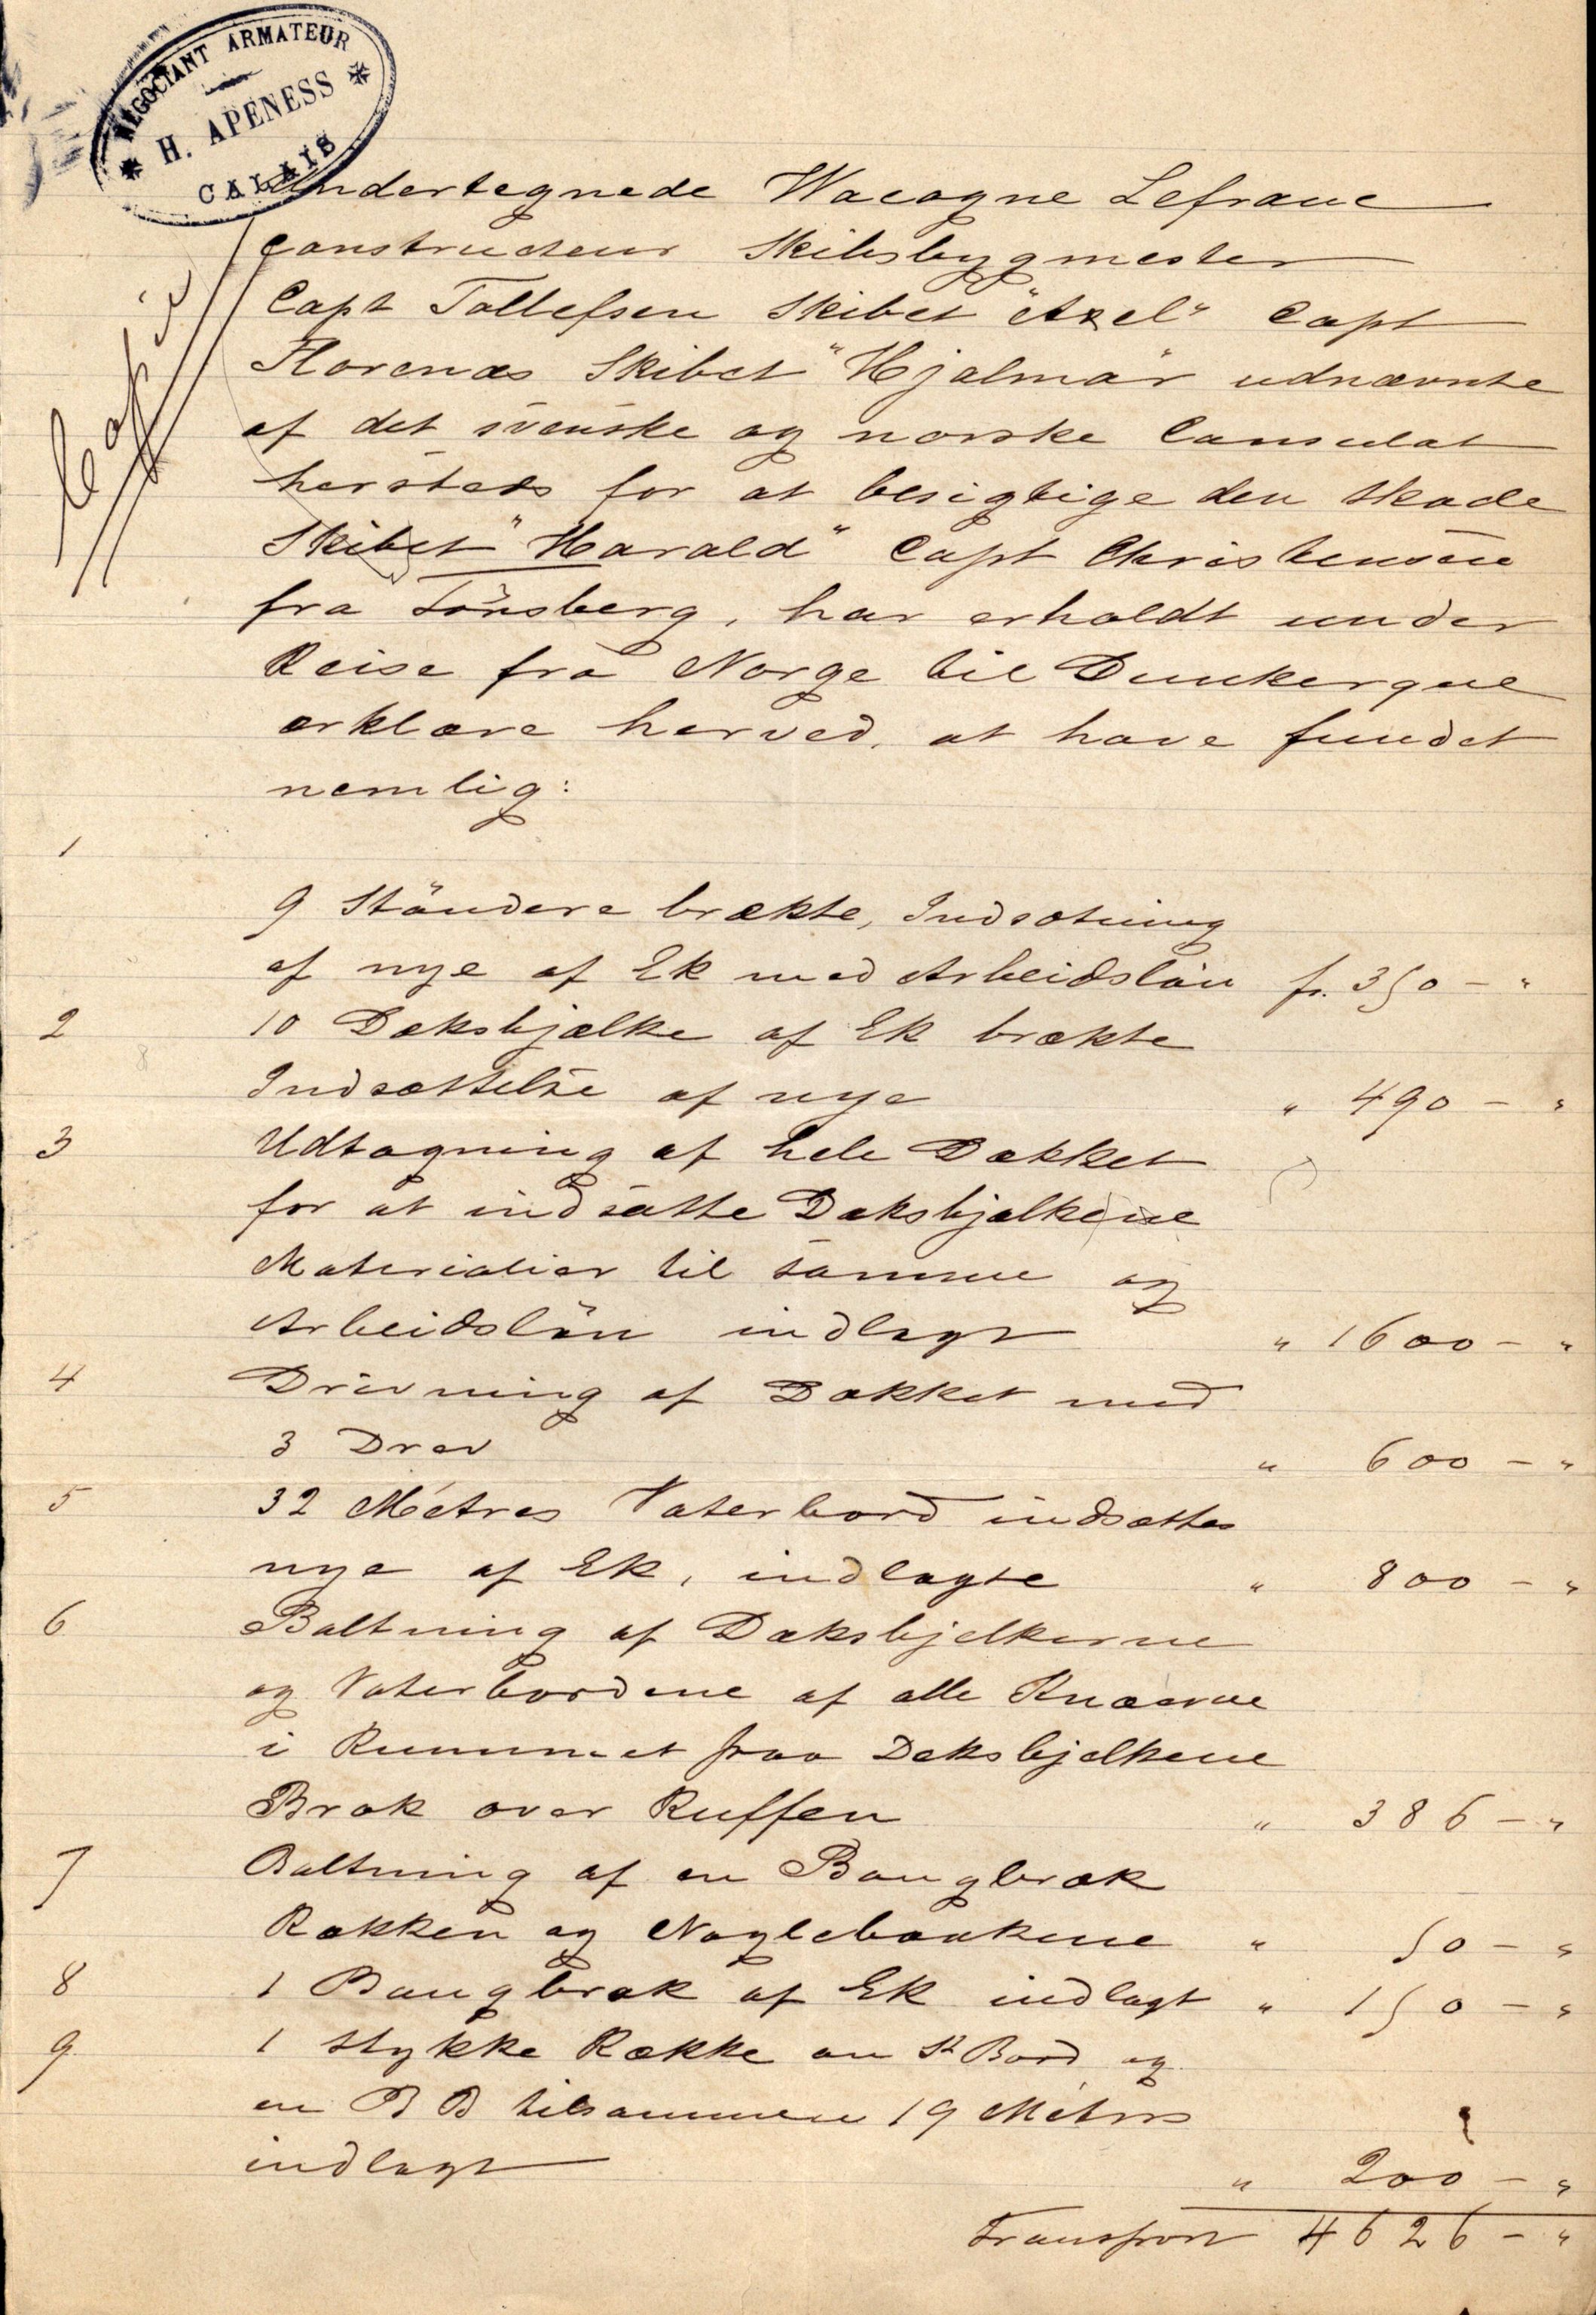 NEGOCIANT ARMATEUR
* H. APENESS *
CALAIS
Copie
Undertegnede Wacogne Lefranc
Constructeur Skibsbygmester
Capt Tollefsen Skibet "Axel" Capt
Florenæs Skibet "Hjalmar" udnævnte
af det svenske og norske Consulat
hersteds for at besigtige den Skade
Skibet "Harald" Capt Christensen
fra Tönsberg, har erholdt under
Reise fra Norge til Dunkerque
erklære herved, at have fundet
nemlig:
1
9 Stöndere brækte, Indsætning
af nye af Ek med Arbeidslön fr. 350 - "
2 10 Dæksbjælke af Ek brækte
Indsættelse af nye " 490 - "
3 Udtagning af hele Dækket
for at indsætte Dæksbjælkene
Materialier til samme og
Arbeidslön indlagt " 1600 - "
4 Drivning af Dækket med
3 Drev " 600 - "
5 32 Métres Vaterbord indsættes
nye af Ek, indlagte " 800 - "
6 Boltning af Dæksbjelkerne
og Vaterbordene af alle Knæerne
i Rummet paa Deksbjelkene
Bræk over Ruffen " 386 - "
7 Boltning af en Baugbræk
Rækken og Naglebænkene " 50 - "
8 1 Baugbræk af Ek indlagt " 150 - "
9 1 Stykke Række en St Bord og
en B B tilsammen 19 Métres
indlagt " 200 - "
Transport 4626 - "